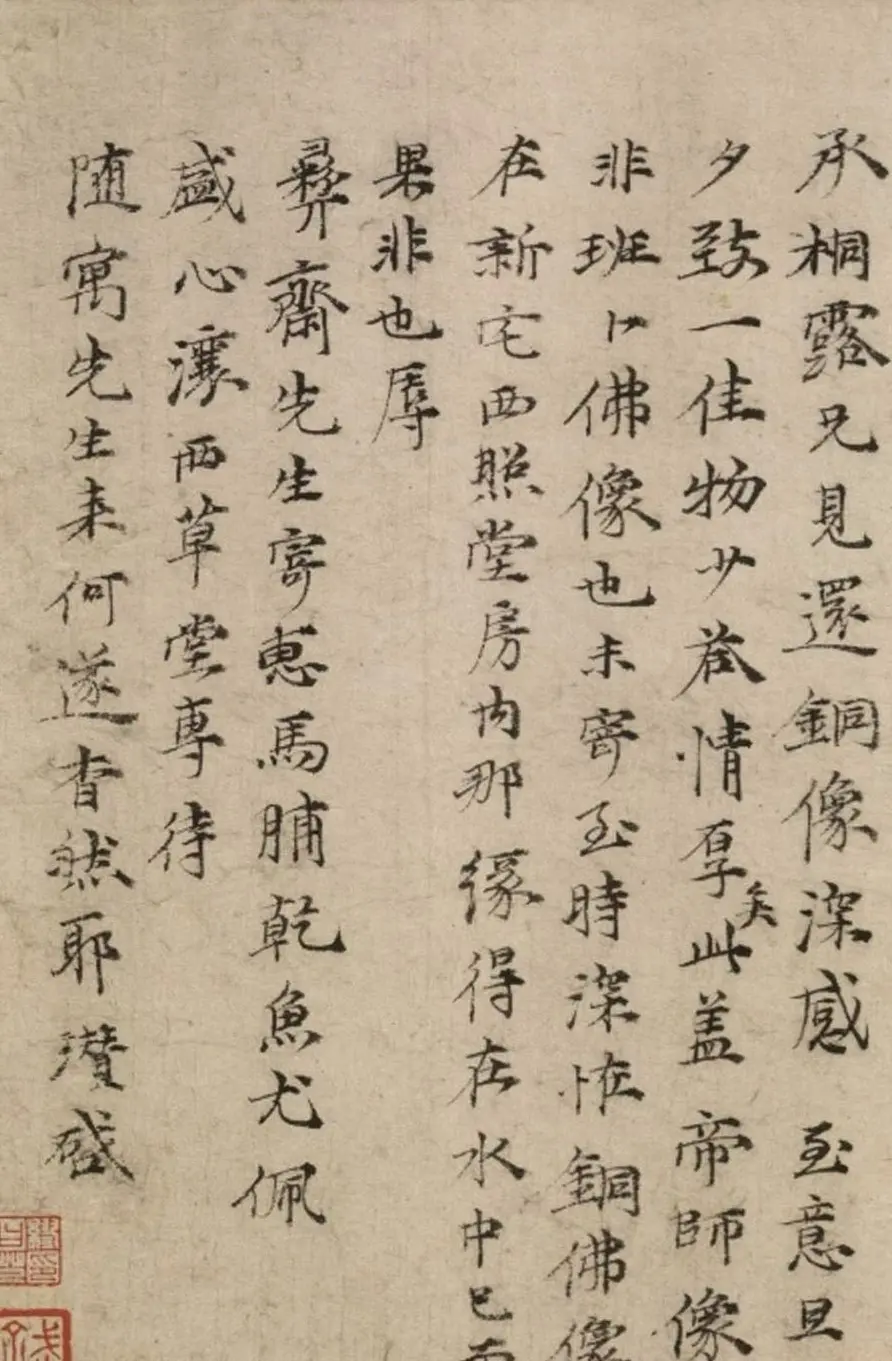 承桐露兄見還銅像深感至意旦
夕致一佳物少答情厚矣此蓋帝師像
非班卜佛像也未寄至時深怪銅佛像
在新宅西照堂房内那緣得在水中已而
果非也辱
彞齋先生寄惠馬脯乾魚尤佩
盛心瀼西草堂専待
随寓先生来何遂杳然耶瓚啓